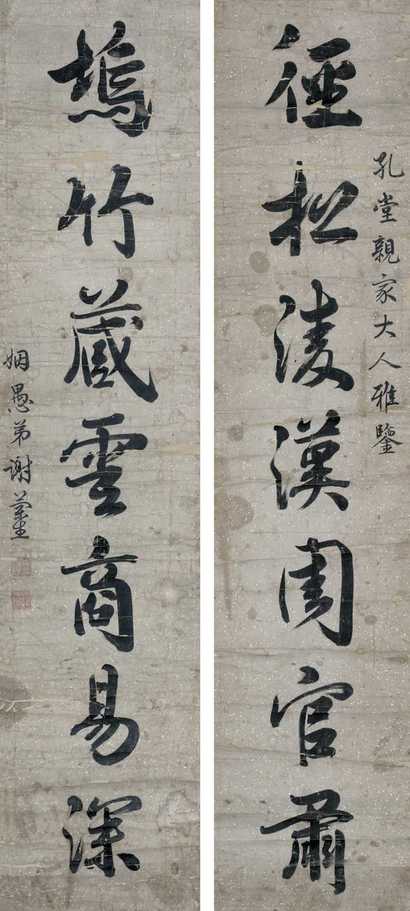 孔堂親家大人雅鑒
徑松淩漢周官肅
塢竹藏雲商易深
姻愚弟謝蘭生